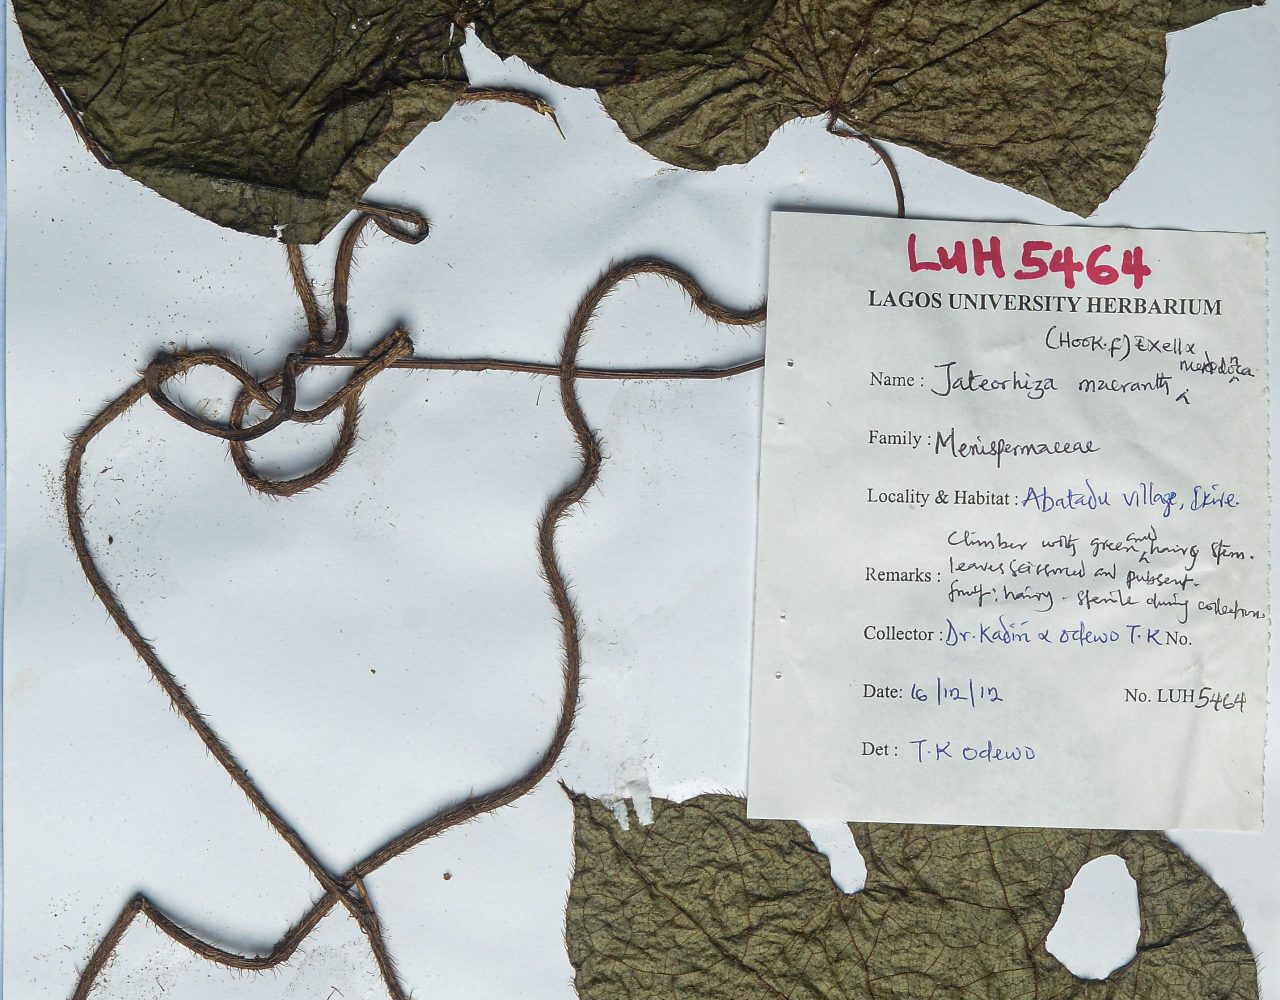 LUH 5464
LAGOS UNIVERSITY HERBARIUM
(Hook.f) Exell &
Name : Jateorhiza macranth
Family : Menispermaceae
Locality & Habitat : Abatadu village, Ikire.
Climber with green and hairy stem.
Remarks : leaves and
fruit: hairy - sterile during collection
Collector : Dr. Kadiri & Odewo T.K No.
Date: 16/12/12 No. LUH 5464
Det : T.K Odewo